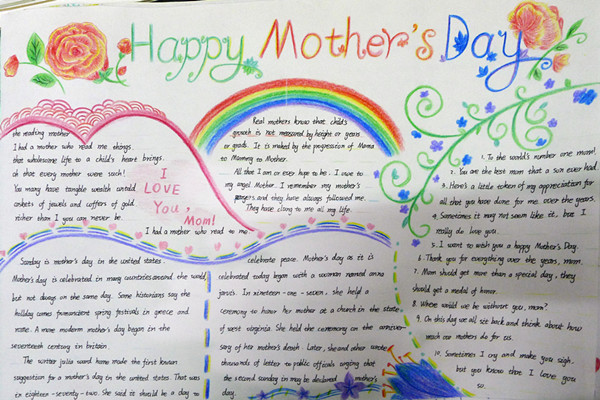 Happy Mother's Day
the reading mother
I had a mother who read me things
that wholesome life to a child's heart brings.
oh that every mother were such!
You may have tangible wealth untold
caskets of jewels and coffers of gold
richer than I you can never be.
I had a mother who read to me
I
LOVE
You,
Mom!
Real mothers know that child's
growth is not measured by height or years
or grade. It is maked by the progression of Mama
to Mommy to Mother.
All that I am or ever hope to be. I owe to
my angel Mother. I remember my mother's
prayers and they have always followed me.
They have clong to me all my life.
1. To the world's number one mom!
2. You are the best mom that a son ever had.
3. Here's a little token of my appreciation for
all that you have done for me over the years.
4. Sometimes it may not seem like it, but I
really do love you.
5. I want to wish you a happy Mother's Day.
6. Thank you for everything over the years, mom.
7. Mom should get more than a special day, they
should get a medal of honor.
8. Where would we be without you, mom?
9. On this day we all set back and think about how
much our mothers do for us.
10. Sometimes I cry and make you sigh,
but you know that I love you
so.
Sunday is mother's day in the united states.
Mother's day is celebrated in many countries around the world
but not always on the same day. Some historians say the
holiday comes fromancient spring festivals in greece and
rome. A more modern mother's day began in the
seventeenth century in britain.
The writer julia ward howe made the first known
suggestion for a mother's day in the united states. That was
in eighteen-seventy-two. She said it should be a day to
celebrate peace. Mother's day as it is
celebrated today began with a woman named anna
jarvis. In nineteen-one-seven, she held a
ceremony to honor her mother at a church in the state
of west virginia. She held the ceremony on the anniver-
sary of her mother's death. Later, she and other wrote
thousands of letter to public officials urging that
the second sunday in may be declared mother's
day.